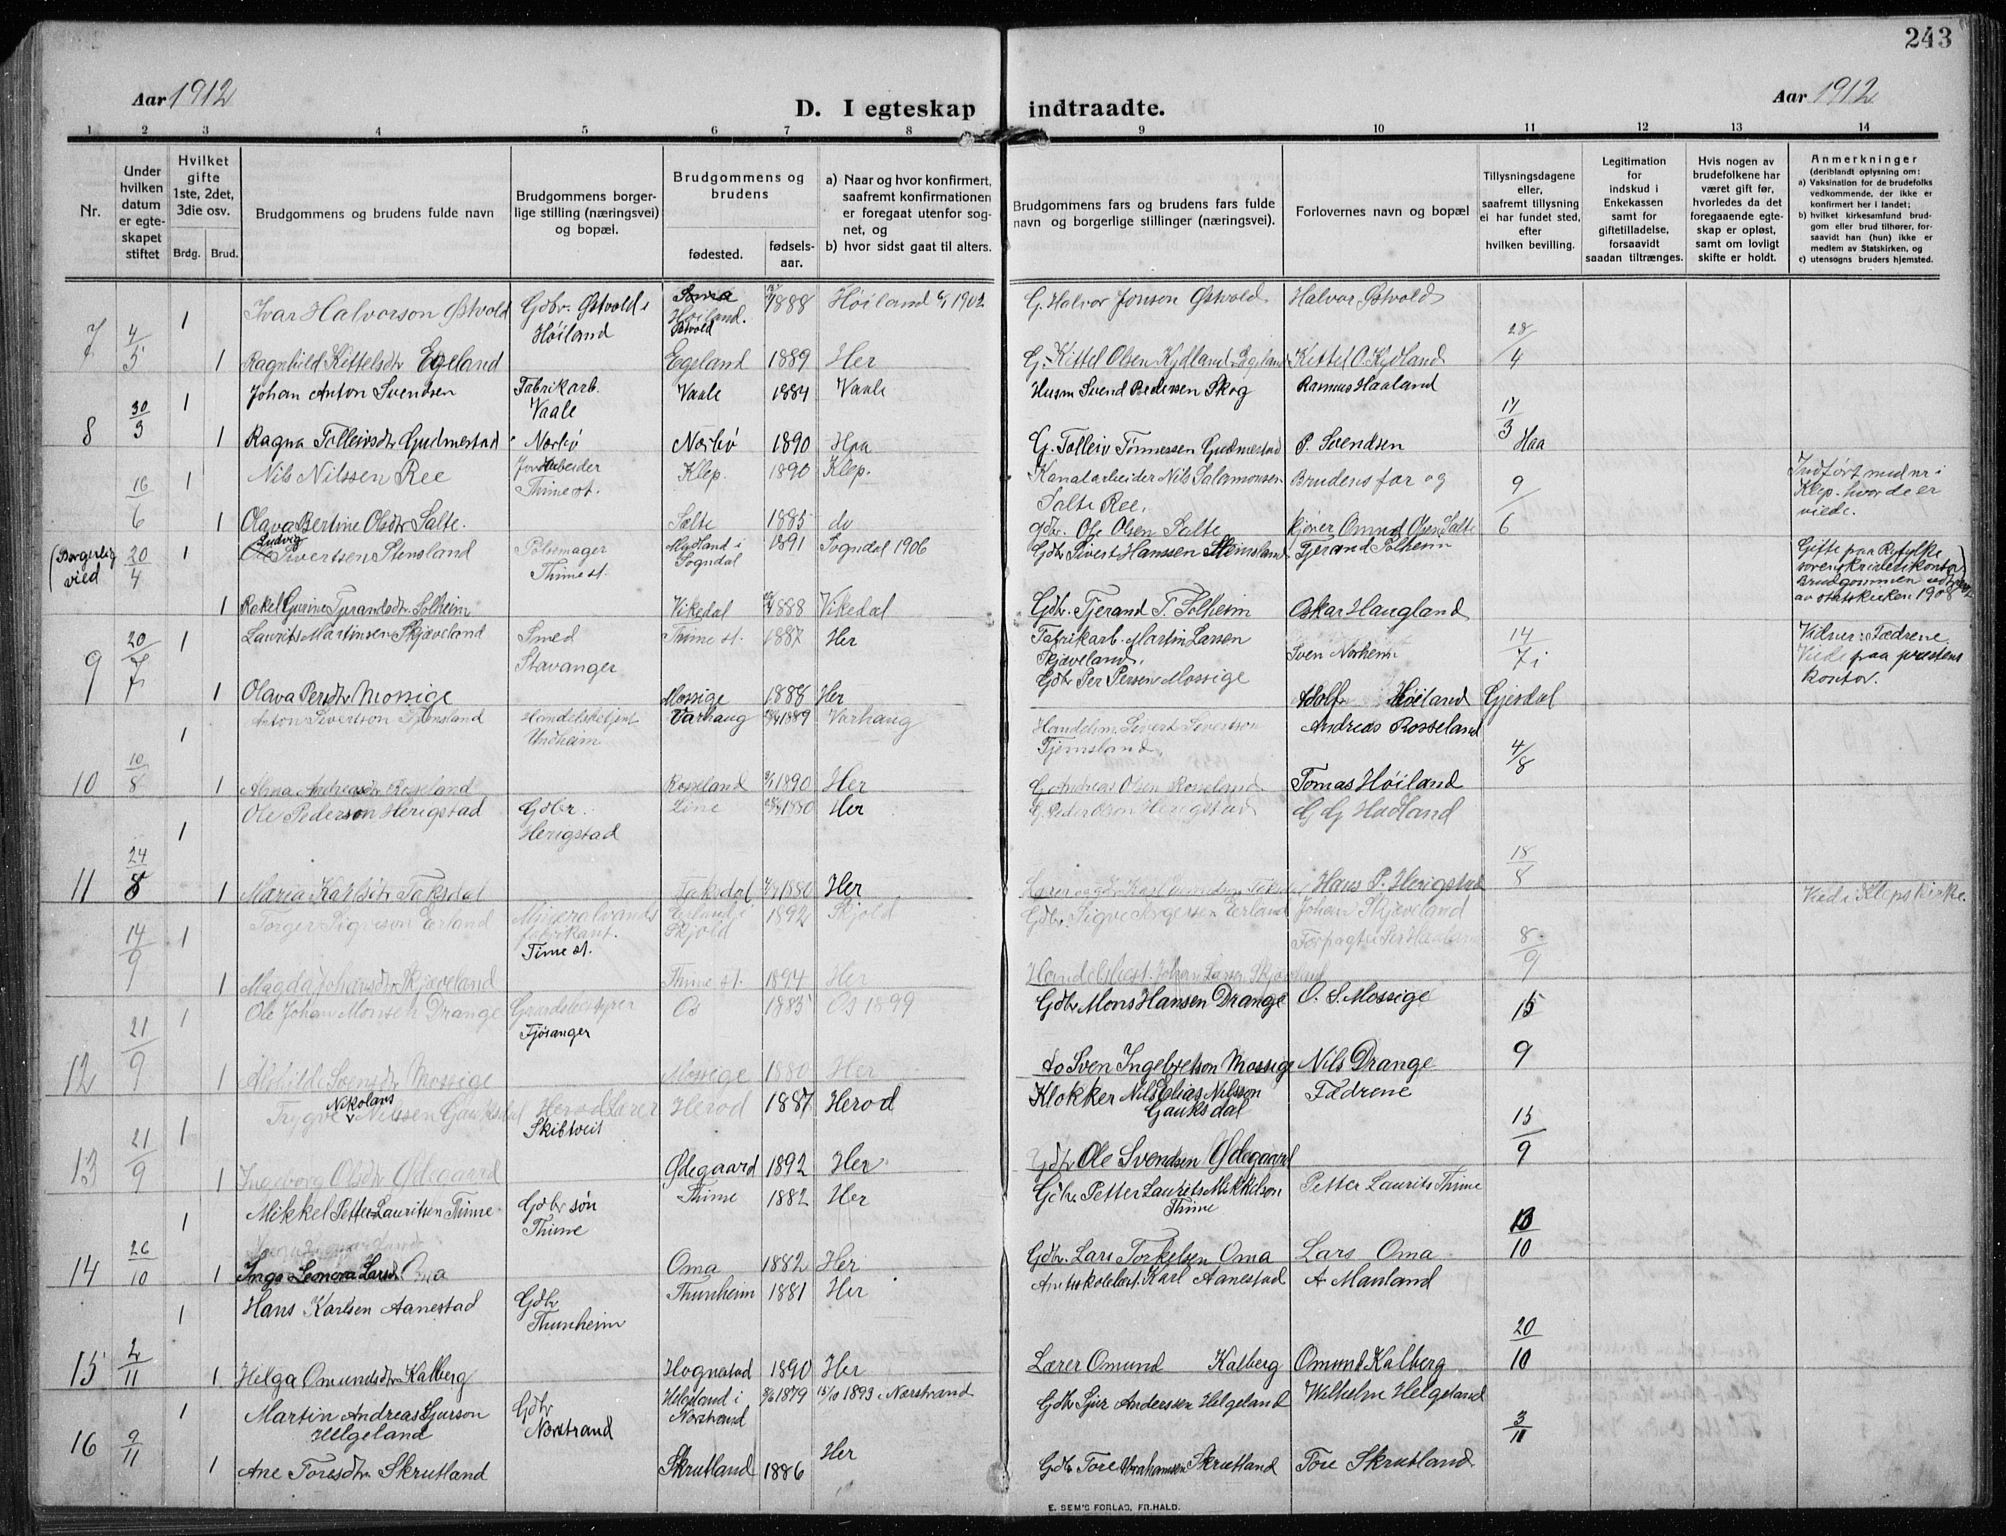 243
Aar 1912
D. I egteskap indtraadte.
Aar 1912
1 2 3 4 5 6 7 8 9 10 11 12 13 14
Nr.
Under hvilken datum er egteskapet stiftet
Hvilket gifte 1ste, 2det, 3die osv.
Brdg. Brud.
Brudgommens og brudens fulde navn
Brudgommens borgerlige stilling (næringsvei) og bopæl.
Brudgommens og brudens
fødested. fødselsaar.
a) Naar og hvor konfirmert, saafremt konfirmationen er foregaat utenfor sognet, og
b) hvor sidst gaat til alters.
Brudgommens fars og brudens fars fulde navn og borgerlige stillinger (næringsvei).
Forlovernes navn og bopæl
Tillysningsdagene eller, saafremt tillysning ei har fundet sted, efter hvilken bevilling.
Legitimation for indskud i Enkekassen samt for giftetilladelse, forsaavidt saadan tiltrænges.
Hvis nogen av brudefolkene har været gift før, hvorledes da det foregaaende egteskap er opløst, samt om lovligt skifte er holdt.
Anmerkninger
(deriblandt oplysning om:
a) Vaksination for de brudefolks vedkommende, der ikke er konfirmert her i landet;
b) hvilket kirkesamfund brudgom eller brud tilhører, forsaavidt han (hun) ikke er medlem av Statskirken, og
c) utensogns bruders hjemsted.
7 4/5 1 Ivar Halvorson Østvold Gdbr. Østvold i Høiland Høiland. Østvold 1888 Høiland 1902 G. Halvor Jonson Østvold Halvor Østvold 28/4
1 Ragnhild Kittelsdtr Egeland Egeland 1889 Her G. Kittel Olsen Kydland Egeland Kittel O. Kydland
8 30/3 1 Johan Anton Svendsen Fabrikarb. Vaale Vaale 1884 Vaale Husm Svend Pedersen Skog Rasmus Haaland 17/3 Haa
1 Ragna Tolleivsdtr Gudmestad Norbø Norbø 1890 Haa G. Tolleiv Tønnessen Gudmestad P. Svendsen
16/6 1 Nils Nilssen Ree Jordarbeider Thime st. Klep. 1890 Klep. Kanalarbeider Nils Salamonsen Salte Ree. Brudens far og 9/6 Indført med nr i Klep. hvor de er viede.
1 Olava Bertine Olsdtr Salte. Salte 1885 do gdbr. Ole Olsen Salte Olsen Salte
(Borgerlig vied) 20/4 1 Ludvig Sivertsen Stensland Pølsemager Thime st. Mydland i Sogndal 1891 Sogndal 1906 Gdbr Sivert Hanssen Stensland Tjerand Solheim Gifte paa Ryfylke sorenskriverkontor Brudgommen av statskirken 1908
1 Rakel Gurine Tjerandsdtr Solheim Vikedal 1888 Vikedal Gdbr. Tjerand T. Solheim Oskar Haugland
9 20/7 1 Laurits Martinsen Skjæveland Smed Stavanger Thime st. 1887 Her Fabrikarb. Martin Larsen Skjæveland. Sven Norheim 14/7 i Gjesdal Vidner: Fædrene. Viede paa prestens kontor.
1 Olava Persdtr Mossige Mossige 1888 Her Gdbr Per Persen Mossige Adolf Høiland
10 10/8 1 Anton Sivertson Tjemsland Handelsbetjent Undheim Varhaug 1889 Varhaug Handelsm. Sivert Sivertson Tjemsland. Andreas Rosseland 4/8
1 Alma Andreasdtr Rosseland Rosseland 1890 Her G. Andreas Olsen Rosseland Tomas Høiland
11 24/8 1 Ole Pederson Herigstad Gdbr. Herigstad Line 1880 Her G. Peder Olson Herigstad G G Hadland 18/8
1 Maria Karlsdtr Taksdal Taksdal 1880 Her Hans P. Herigstad
14/9 1 Torger Sigveson Erland Mineralvandsfabrikant. Time st. Erland i Skjold 1892 Skjold Gdbr. Sigve Erland Johan Skjæveland 8/9 Vied i Klep kirke.
1 Magda Johansdtr Skjæveland Thime st. 1894 Her Handelsbest. Johan Larsen Skjæveland
12 21/9 1 Ole Johan Monsen Drange Gaardsbestyrer Fjøsanger Os 1885 Os 1899 Gdbr Mons Hansen Drange O. S. Mossige 15/9
1 Mossige Mossige 1880 Her do Sven Ingebretson Mossige Nils Drange
13 21/9 1 Trygve Nikolaus Nilssen Gauksdal Herod Lærer Skibtveit Herod 1887 Herod Klokker Nils Elias Nilsson Gauksdal Fædrene 15/9
1 Ingeborg Olsdtr Ødegaard Ødegaard 1892 Her Gdbr Ole Svendsen Ødegaard
14 26/10 1 Mikkel Petter Lauritsen Thime Gdbr søn Thime Thime 1882 Her Gdbr. Petter Laurits Mikkelson Thime Petter Laurits Thime 13/10
1 Inga Leonora Larsd. Oma Oma 1882 Her Gdbr. Lars Torkelsen Oma Lars Oma
15 2/11 1 Hans Karlsen Aanestad Gdbr Thunheim Thunheim 1881 Her Amtsskolebest. Karl Aanestad A. Mauland 20/10
1 Helga Omundsdtr Kalberg Hognestad 1890 Her Lærer Omund Kalberg Omund Kalberg
16 9/11 1 Martin Andreas Sjurson Helgeland Gdbr Nerstrand Helgeland i Nerstrand 1879 15/10 1893 Nerstrand Gdbr Sjur Anderssen Helgeland Wilhelm Helgeland 3/11
1 Ane Toresdtr Skrutland Skrutland 1886 Her Gdbr Tore Abrahamsen Skrutland Tore Skrutland
E. SEM'S FORLAG, FR.HALD.